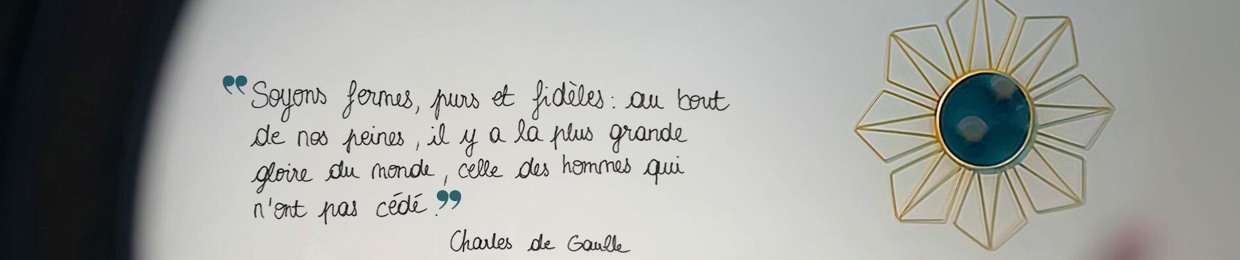 ❞Soyons fermes, purs et fidèles : au bout
de nos peines, il y a la plus grande
gloire du monde, celle des hommes qui
n'ont pas cédé.❞
Charles de Gaulle